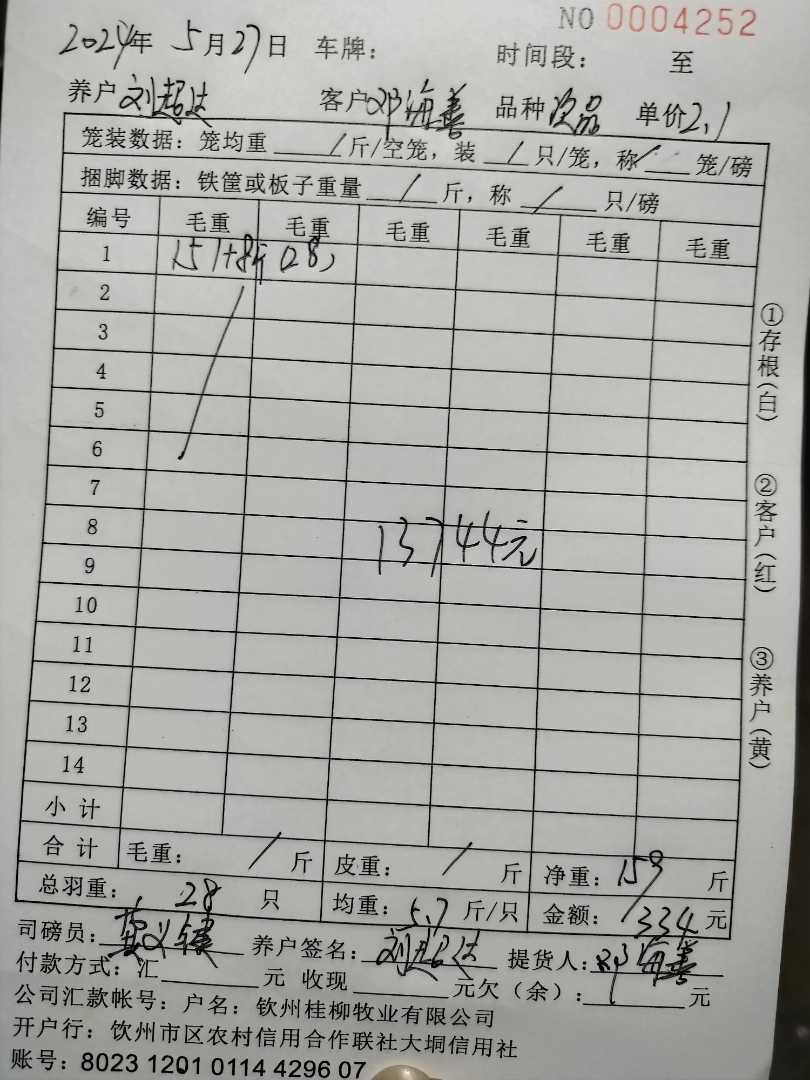 NO 0004252
2024年 5月27日 车牌： 时间段： 至
养户 刘超达 客户 邓海善 品种 次品 单价 2.1
笼装数据：笼均重 / 斤/空笼，装 / 只/笼，称 / 笼/磅
捆脚数据：铁筐或板子重量 / 斤，称 / 只/磅
编号 毛重 毛重 毛重 毛重 毛重 毛重
1 151+8斤 (28)
2
3
4
5
6
7
8 13744元
9
10
11
12
13
14
小计
合计 毛重： / 斤 皮重： / 斤 净重：159 斤
总羽重： 28 只 均重：5.7 斤/只 金额：334 元
司磅员： 养户签名：刘超达 提货人：邓海善
付款方式：汇 元 收现 元欠（余）： 元
公司汇款帐号：户名：钦州桂柳牧业有限公司
开户行：钦州市区农村信用合作联社大垌信用社
账号：8023 1201 0114 4296 07
①存根（白） ②客户（红） ③养户（黄）